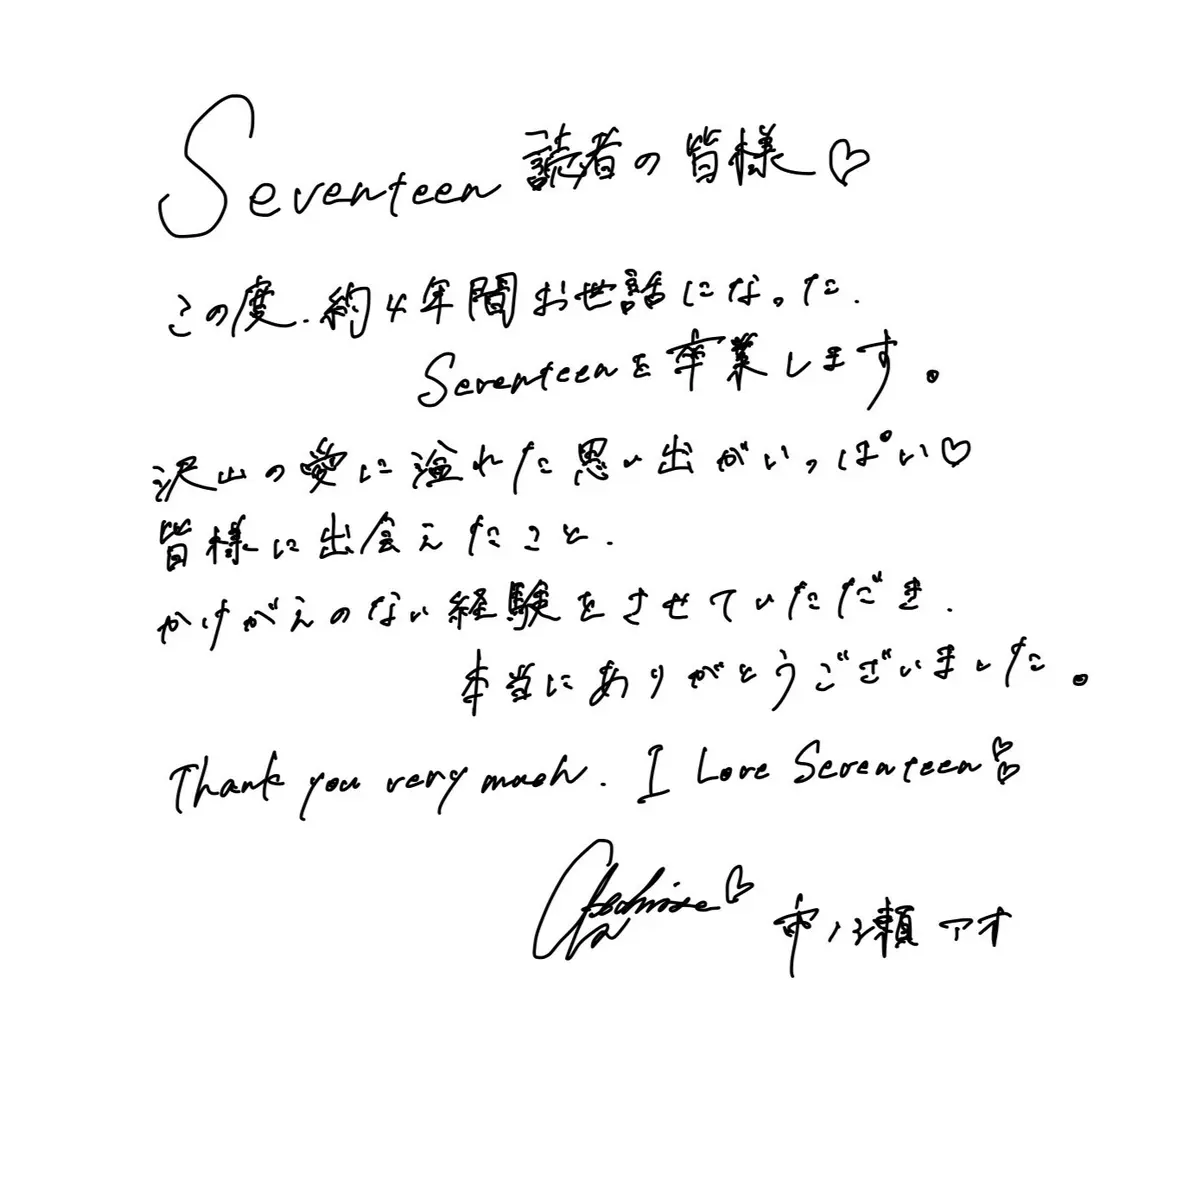 Seventeen 読者の皆様♡
この度、約4年間お世話になった、
Seventeenを卒業します。
沢山の愛に溢れた思い出がいっぱい♡
皆様に出会えたこと、
かけがえのない経験をさせていただき、
本当にありがとうございました。
Thank you very much. I Love Seventeen♡♡
♡ 市ノ瀬アオ